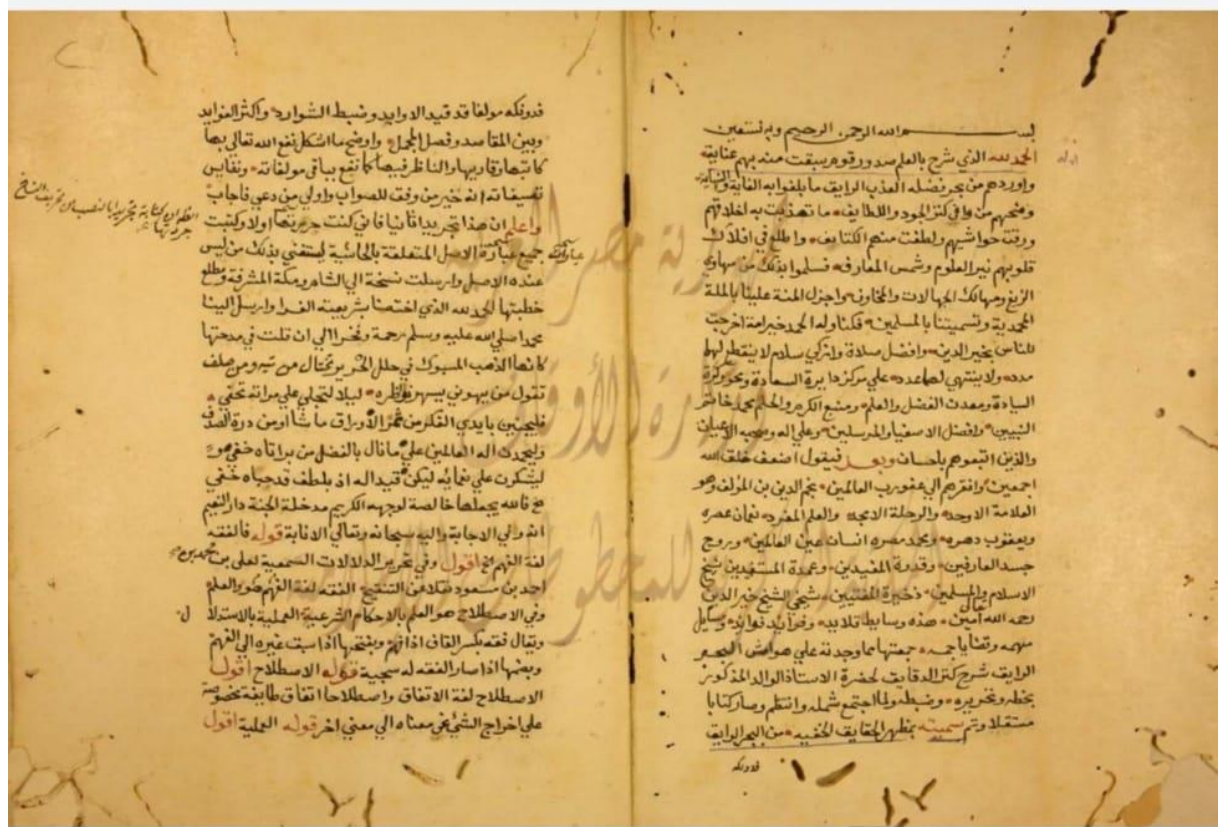 بسم الله الرحمن الرحيم وبه نستعين
الحمد لله الذي شرح بالعلم صدور قوم سبقت منه بهم عناية
واوردهم من بحر فضله العذب الرايق ما بلغوا به الغاية والنهاية
ومنحهم من وافي كنز الجود واللطايف ما تهذبت به اخلاقهم
ورقت حواشيهم ولطفت منهم الكتايف واطلع في افلاك
قلوبهم نير العلوم وشمس المعارف فسلموا بذلك من مهاوي
الزيغ ومهالك الجهالات والمخاوف واجزل المنة علينا بالملة
المحمدية وتسميتنا بالمسلمين فكنا وله الحمد خير امة اخرجت
للناس بخير الدين وافضل صلاة وازكي سلام لا ينقطع لهما
مدد ولا ينتهي لهما عدد علي مركز دايرة السعادة ومحور كرة
السيادة ومعدن الفضل والعلم ومنبع الكرم والحلم محمد خاتم
النبيين وافضل الاصفيا والمرسلين وعلي اله وصحبه الاعيان
والذين اتبعوهم باحسان وبعد فيقول اضعف خلق الله
اجمعين وافقرهم الي عفو رب العالمين نجم الدين بن المؤلف وهو
العلامة الاوحد والرحلة الامجد والعلم المفرد نعمان عصره
ويعقوب دهره ومحمد مصره انسان عين العالمين وروح
جسد العارفين وقدوة المفيدين وعمدة المستفيدين شيخ
الاسلام والمسلمين ذخيرة المفتيين شيخي الشيخ خير الدين
رحمه الله تعالي آمين هذه وسايط قلايد وفرايد فوايد ومسايل
مهمه وقضايا جمه جمعتها مما وجدته علي هوامش البحر
الرايق شرح كنز الدقايق لحضرة الاستاذ الوالد المذكور
بخطه وتحريره وضبطه ولما اجتمع شمله وانتظم وصار كتابا
مستقلا وتم سميته بمظهر الحقايق الخفيه من البحر الرايق
فدونكه
فدونكه مولفا قد قيد الاوابد وضبط الشوارد واكثر الفوايد
وبين المقاصد وفصل المجمل واوضح ما اشكل نفع الله تعالي بها
كاتبها وقاريها والناظر فيها كما نفع بباقي مولفاته ونفايس
تصنيفاته انه خير من وفق للصواب واولي من دعي فاجاب
واعلم ان هذا تجريدا ثانيا فاني كنت جردتها اولا وكتبت
جميع عبارة الاصل المتعلقة بالحاشية ليستغني بذلك من ليس
عنده الاصل وارسلت نسخة الي الشام ومكة المشرفة ومطلع
خطبتها الحمد لله الذي اختصنا بشريعته الغرا وارسل الينا
محمدا صلي الله عليه وسلم رحمة وفخرا الي ان قلت في مدحتها
كانها الذهب المسبوك في حلل الحرير تختال من تيه ومن صلف
تقول من يهوني يسهر نواظره ليلا لتجلي علي مراته تحفي
فليجتن بايدي الفكر من ثمر الاوراق ما شا او من درة الصدف
وليحمدن اله العالمين علي ما نال بالفضل من
ليشكرن علي نعمايه ليكن قيدا له اذ بلطف قد حباه خفي
فالله يجعلها خالصة لوجهه الكريم مدخلة الجنة دار النعيم
انه ولي الاجابة واليه سبحانه وتعالي الانابة قوله فالفقه
لغة الفهم الخ اقول وفي تحرير الدلالات السمعية لعلي بن محمد بن
احمد بن مسعود نقلا عن التنقيح الفقه لغة الفهم والعلم
وفي الاصطلاح هو العلم بالاحكام الشرعية العملية بالاستدلال
ويقال فقه بكسر القاف اذا فهم وبفتحها اذا سبق غيره الي الفهم
وبضمها اذا صار الفقه له سجية قوله الاصطلاح اقول
الاصطلاح لغة الاتفاق واصطلاحا اتفاق طايفة مخصوصة
علي اخراج الشئ عن معناه الي معني اخر قوله العملية اقول